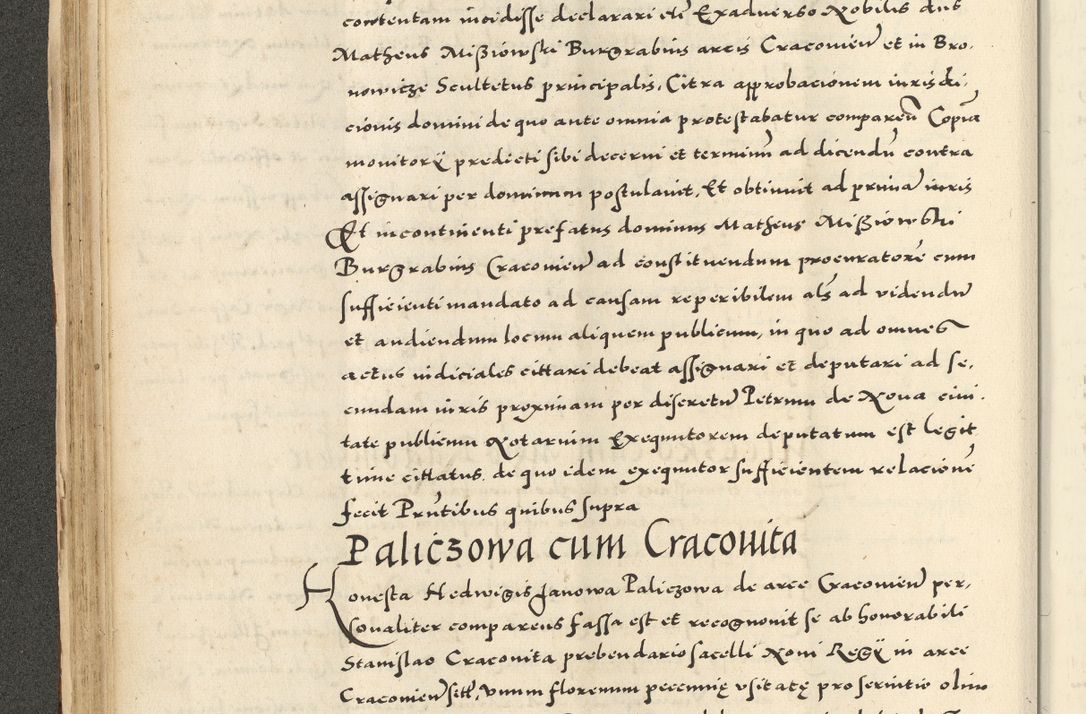 contentam incidisse declarari etc Exadverso Nobilis dns
Matheus Misziowski Burgrabius arcis Cracovien et in Bro-
nowicze Scultetus principalis, Citra approbacionem iurisdi-
cionis domini de quo ante omnia protestabatur comparen Copia
monitorÿ predicti sibi decerni et terminu ad dicendu contra
assignari per dominum postulavit, Et obtinuit ad prima iuris
Et incontinenti prefatus dominus Matheus Misziowski
Burgrabius Cracovien ad constituendum procuratore cum
sufficienti mandato ad causam reperibilem als ad videndu
et audiendum locum aliquem publicum, in quo ad omnes
actus iudiciales cittari debeat assignari et deputari ad se-
cundam iuris proximam per discretu Petrum de Nova civi-
tate publicum Notarium Exequutorem deputatum est legit
time cittatus, de quo idem exequutor sufficientem relacione
fecit Prntibus quibus supra
Paliczowa cum Cracovita
Honesta Hedwigis Janowa Paliczowa de arce Cracovien per-
sonaliter comparens fassa est et recognovit se ab honorabili
Stanislao Cracovita prebendario sacelli Novi Regÿ in arce
Cracovien sitl, unum florenum pecunię usitatę pro servitio olim